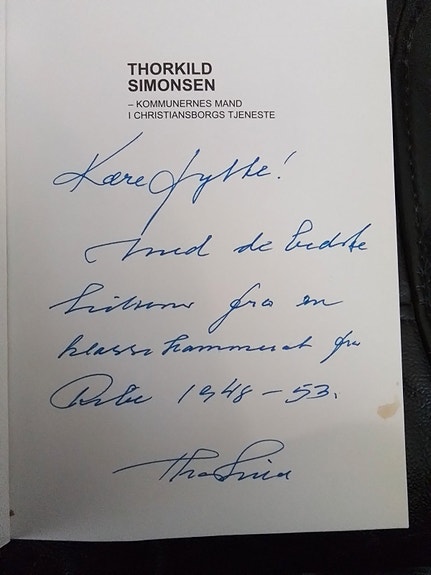 THORKILD
SIMONSEN
– KOMMUNERNES MAND
I CHRISTIANSBORGS TJENESTE
Kære Jytte!
med de bedste
hilsener fra en
klassekammerat fra
Ribe 1948 – 53.